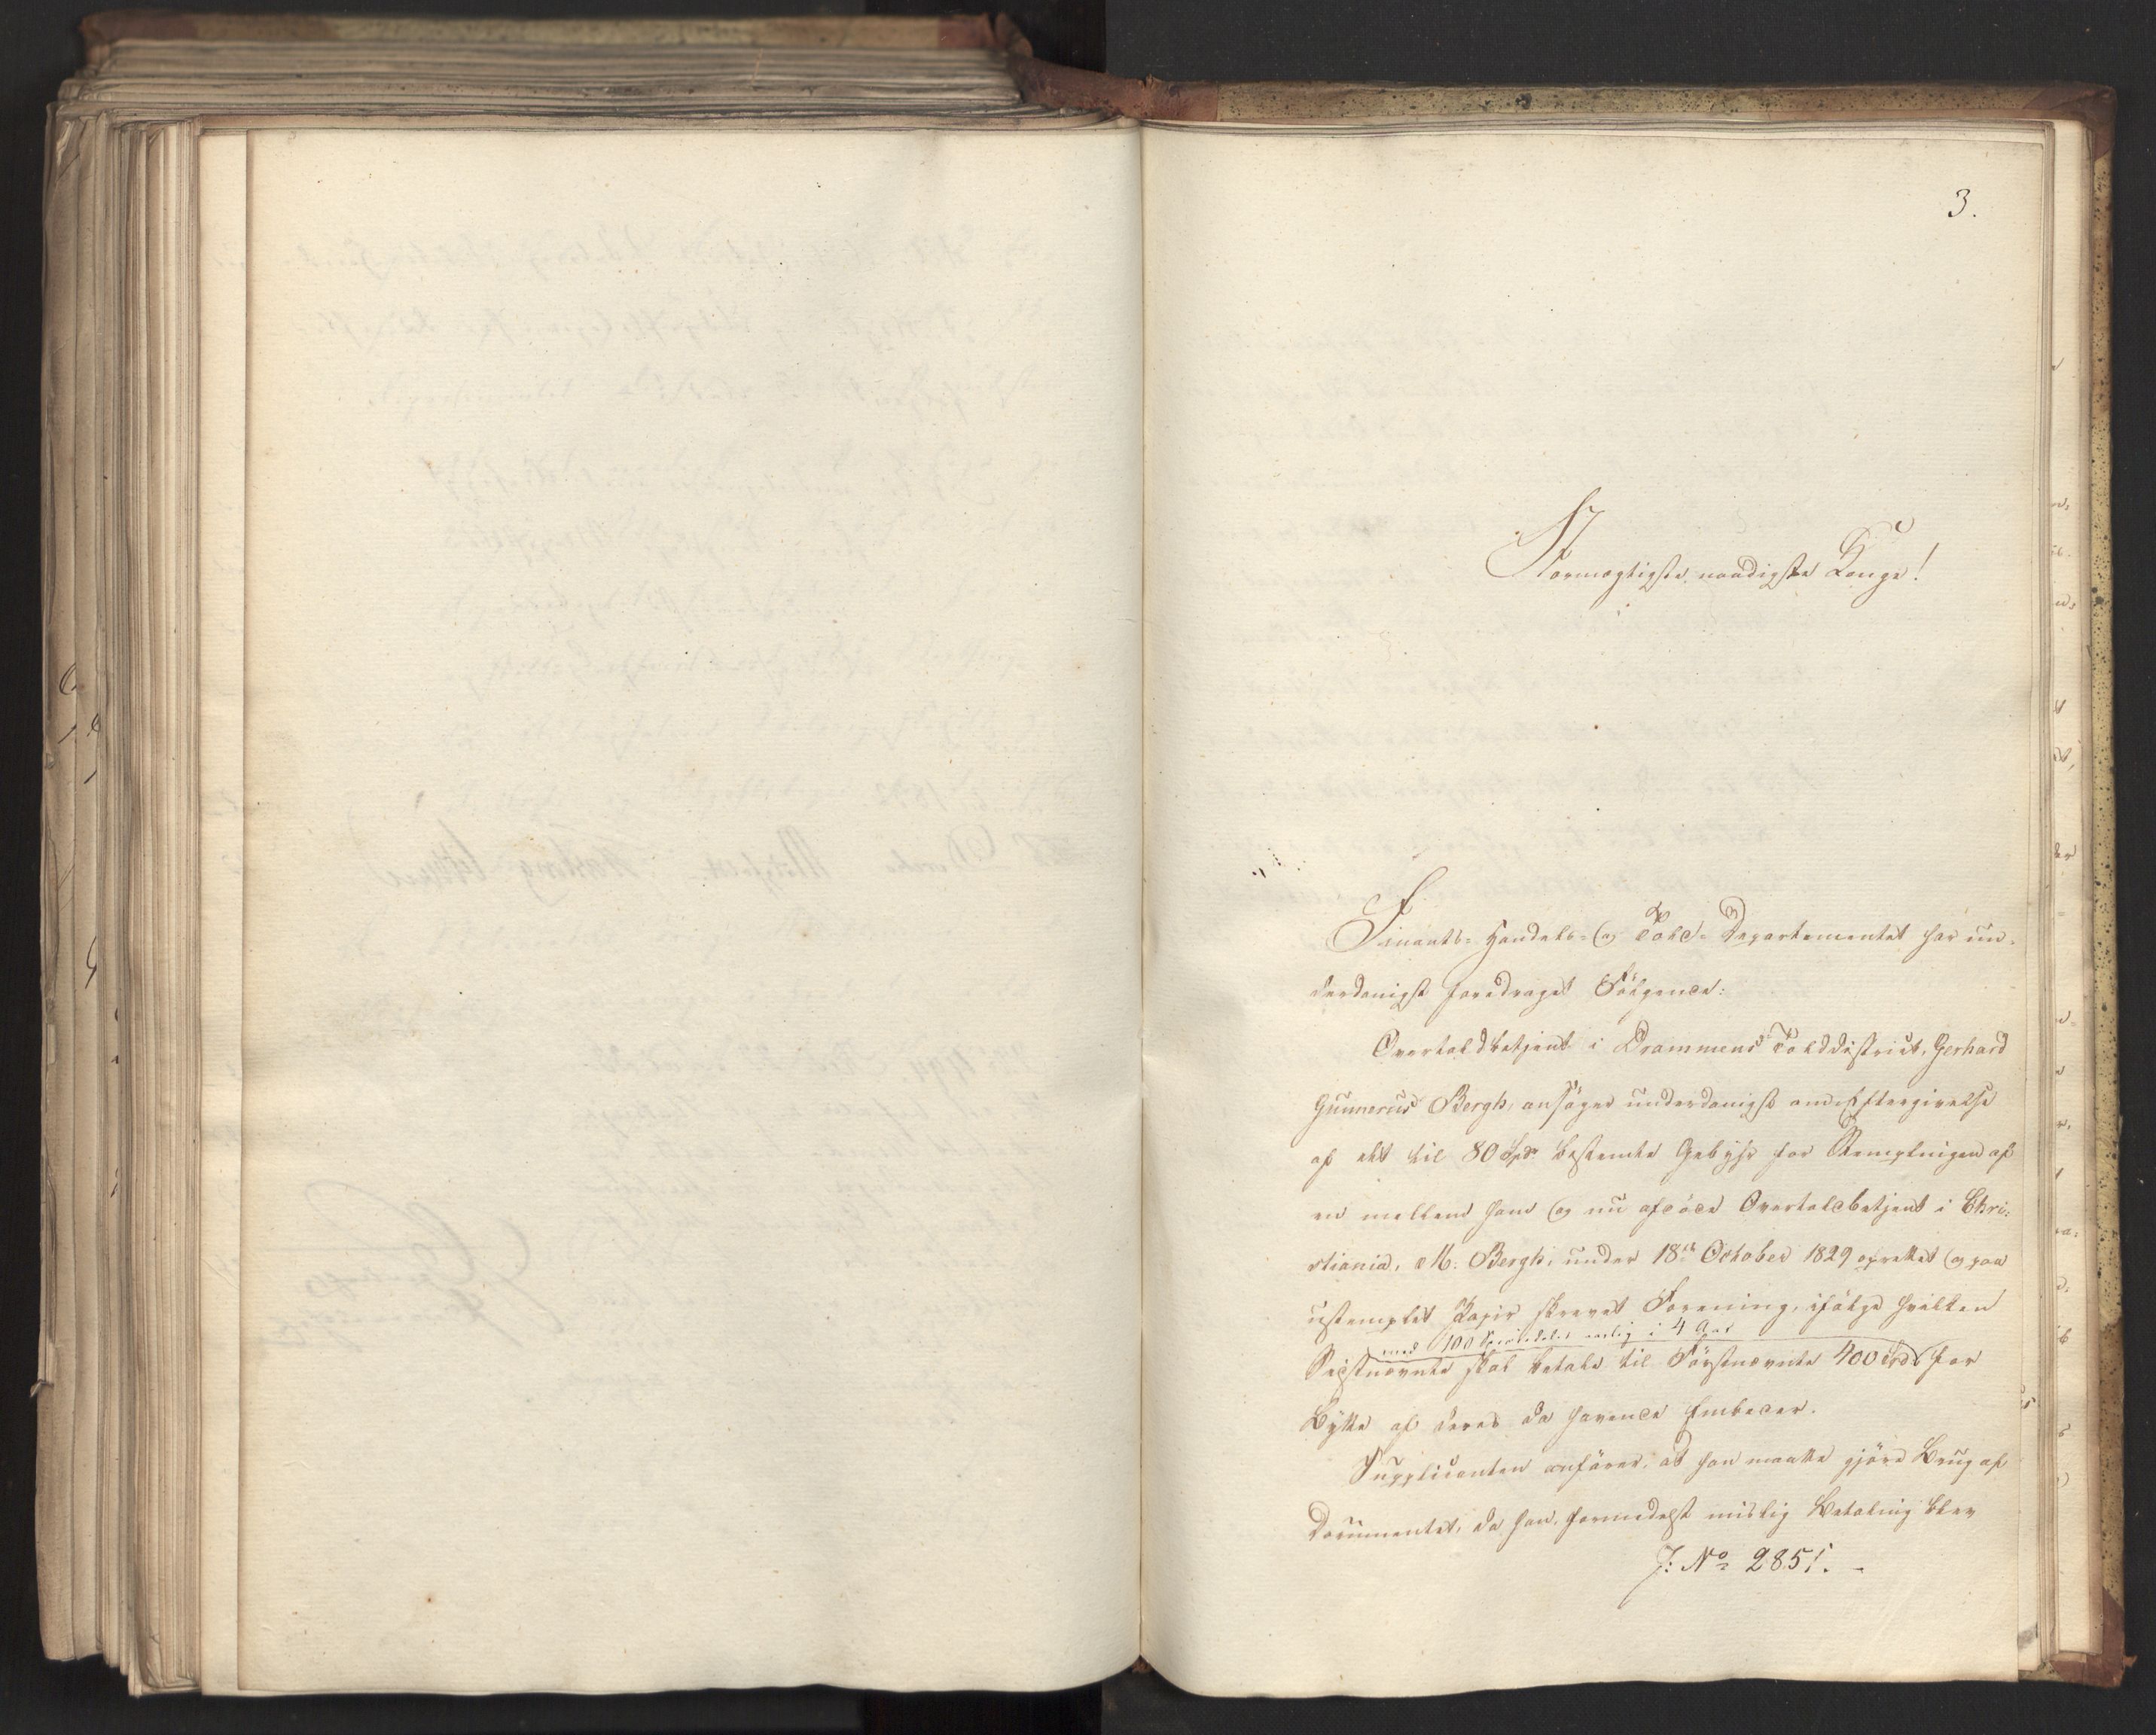 3.
Stormægtigste naadigste Konge!
Finants- Handels- og Told-Departementet har un-
derdanigst foredraget Følgende:
Overtoldbetjent i Drammens Tolddistrict, Gerhard
Gunnerus Bergh, ansøger underdanigst om Eftergivelse
af det til 80 Spd. bestemte Gebyhr for Stemplingen af
en mellem ham og nu afdøde Overtoldbetjent i Chri-
stiania, M. Bergh, under 18de October 1829 oprettet og paa
ustemplet Papir skrevet Forening, ifølge hvilken
med 100 Speciedaler aarlig i 4 Aar
Sidstnævnte skal betale til Førstnævnte 400 Spd. for
Bytte af deres da havende Embeder.
Supplicanten anfører, at han maatte gjøre Brug af
Documentet, da han, formedelst mislig Betaling blev
J: No 2851.